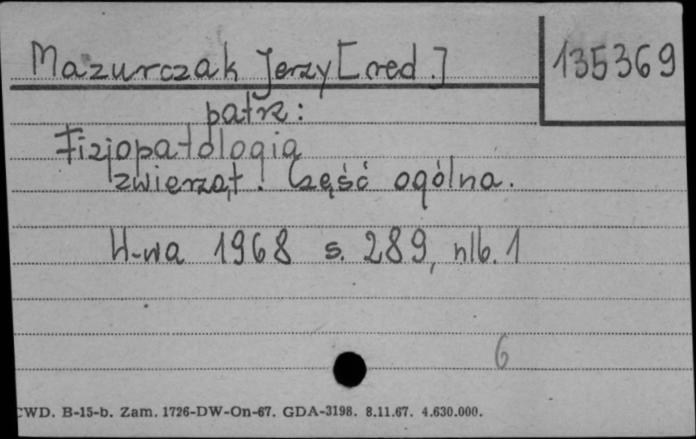 Mazurczak Jerzy [red.]
135369
patrz:
Fizjopatologia
zwierząt. Część ogólna.
W-wa 1968 s. 289, nlb. 1
6
CWD. B-15-b. Zam. 1726-DW-On-67. GDA-3198. 8.11.67. 4.630.000.